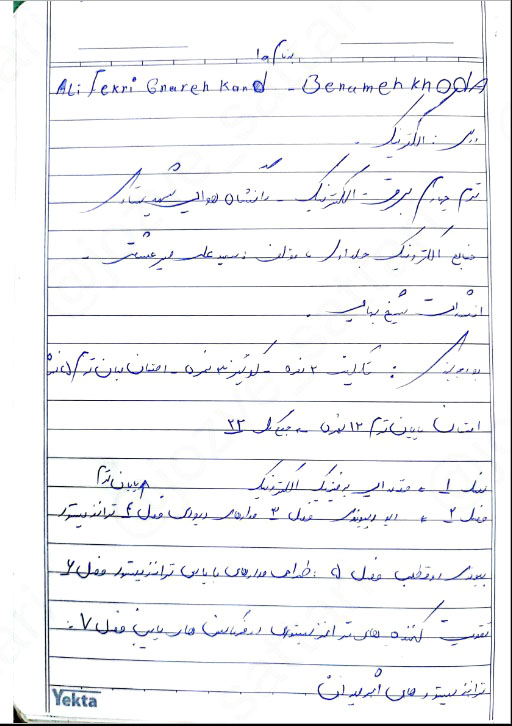 بنام خدا
Ali Fekri Gnareh Kand - Benameh khodA
درس : الکترونیک .
ترم چهارم برق - الکترونیک - دانشگاه هوایی شهید ستاری
منابع الکترونیک جلد اول ، مولف : سید علی میرعشقی -
انتشارات شیخ بهایی .
: تکلیف ۲ نمره - کوئیز ۳ نمره - امتحان میان ترم ۵ نمره
امتحان پایان ترم ۱۲ نمره - جمع کل ۲۲
پایان ترم
فصل 1 ، مقدمه‌ای بر فیزیک الکترونیک
فصل ۲ ، دیود پیوندی فصل ۳ مدارهای دیودی فصل ۴ ترانزیستور
پیوندی دو قطبی فصل ۵ : طراحی مدارهای بایاس ترانزیستور فصل ۶
تقویت کننده های ترانزیستوری در فرکانس های پایین فصل ۷ :
ترانزیستور های اثر میدان
Yekta